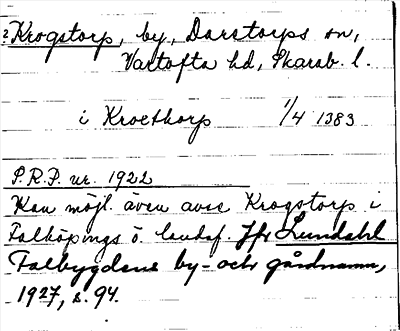 ? Krogstorp, by, Darstorps sn,
Vartofta hd, Skarab. l.
i Krocthorp 1/4 1383
S.R.P. nr. 1922
Kan möjl. även avse Krogstorp i
Falköpings ö. landsf. Jfr Lundahl
Falbygdens by- och gårdnamn,
1927, s. 94.